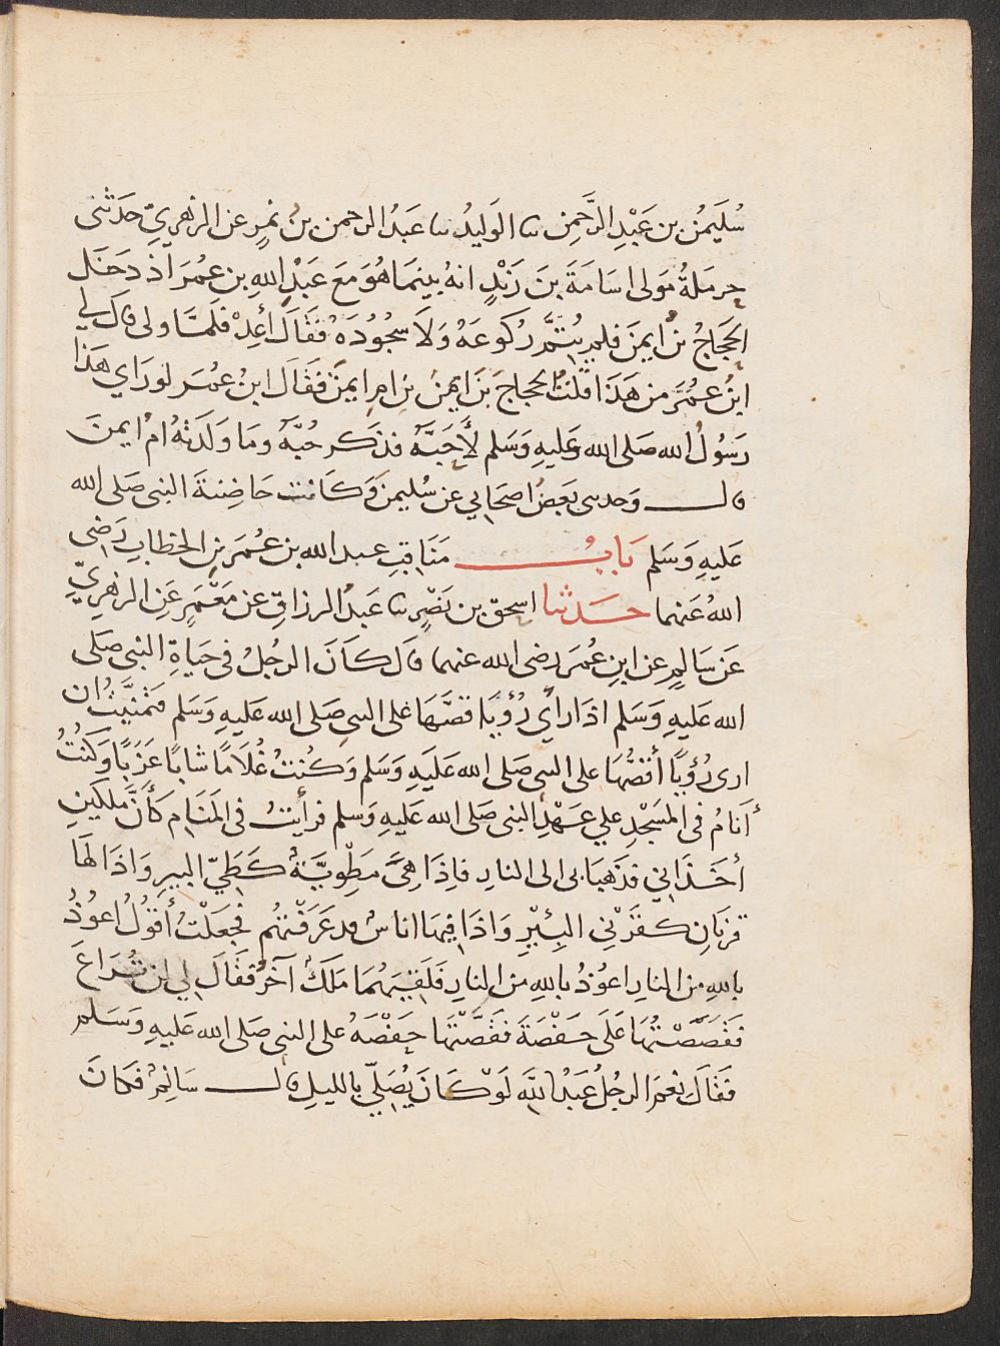 سُلَيمٰنُ بن عَبْدِ الرَّحمٰنِ سا الوَليدُ سا عَبدُ الرحمن بنُ نمِرٍ عن الزهريِّ حدَثنى
حرمَلةُ مَولى اسَامَةَ بنَ زَيْدٍ انهُ بينمَا هُوَ مَعَ عَبْدِ اللهِ بن عمُرَ اذ دَخَل
الحَجَاجُ بنُ ايمنَ فلم يُتمَّ رُكوعَهُ وَلاَ سجُودَهُ فقَالَ أَعِدْ فلَمَّا ولى قال لي
ابنُ عمُرَ من هَذَا قُلتُ الحجاجُ بنَ ايمنَ بنِ امِ ايمنَ فقَالَ ابنُ عمُرَ لو رَاي هَذا
رَسُولُ الله صَلى الله عَليهِ وَسَلم لأَحَبَّهُ فذَكرَ حُبَّهُ ومَا وَلَدَتهُ امُ ايمنَ
قال وَحدثنى بَعضُ اصحَابي عن سُليمنَ وَكَانت حَاضِنةَ النبى صَلى الله
عَليهِ وَسَلم بَابُ مَنَاقبِ عبد الله بن عمُرَ بنِ الخطابِ رَضى
اللهُ عَنهما حدَثنا اسحقُ بن نَصْرٍ سا عَبدُ الرزاقِ عن مَعْمَرٍ عَنِ الزهريِّ
عَن سَالمٍ عن ابنِ عُمَرَ رضى الله عنهما قال كاَنَ الرجُلُ فى حَيَاةِ النبى صَلى
الله عَليهِ وَسَلم اذا رأي رُؤيًا قصَّهَا عَلى النبى صَلى الله عَليهِ وَسَلم فتمنَّيتُ ان
ارى رُؤيًا أقصُّهَا على النبى صَلى الله عَليَهِ وَسَلم وَكنتُ غُلاَمًا شابًا عَزَبًا وَكنتُ
أنَامُ فى المسَجْدِ علي عَهْدِ النبى صَلى الله عَليهِ وَسلم فرأيتُ فى المَنَامِ كَأنَّ ملكَينِ
أخَذَاني فذَهبَا بى الى النارِ فاِذَا هِيَ مَطِوْيَّةٌ كَطَيِّ البيرِ وَاذَا لهَا
قرنَانِ كقرَنْي البِئيْرِ وَاذَا فِيهَا اناسٌ قد عَرَفتهُم فجعَلْتُ أقوُلُ اعوُذُ
باللهِ من النارِ اعوُذُ باللهِ من النارِ فلَقيَهُمَا مَلَكٌ آخَرُ فقَالَ لي لن تُرَاعَ
فقصَصْتُهَا عَلَى حَفْصَةَ فقَصَّتْهَا حَفصَةُ على النبى صَلى الله عَليهِ وَسَلم
فقَالَ نعمَ الرجُلُ عَبدُ اللهَ لَوْ كاَنَ يُصَلّي بالليلِ قال سَالِمٌ فكَانَ